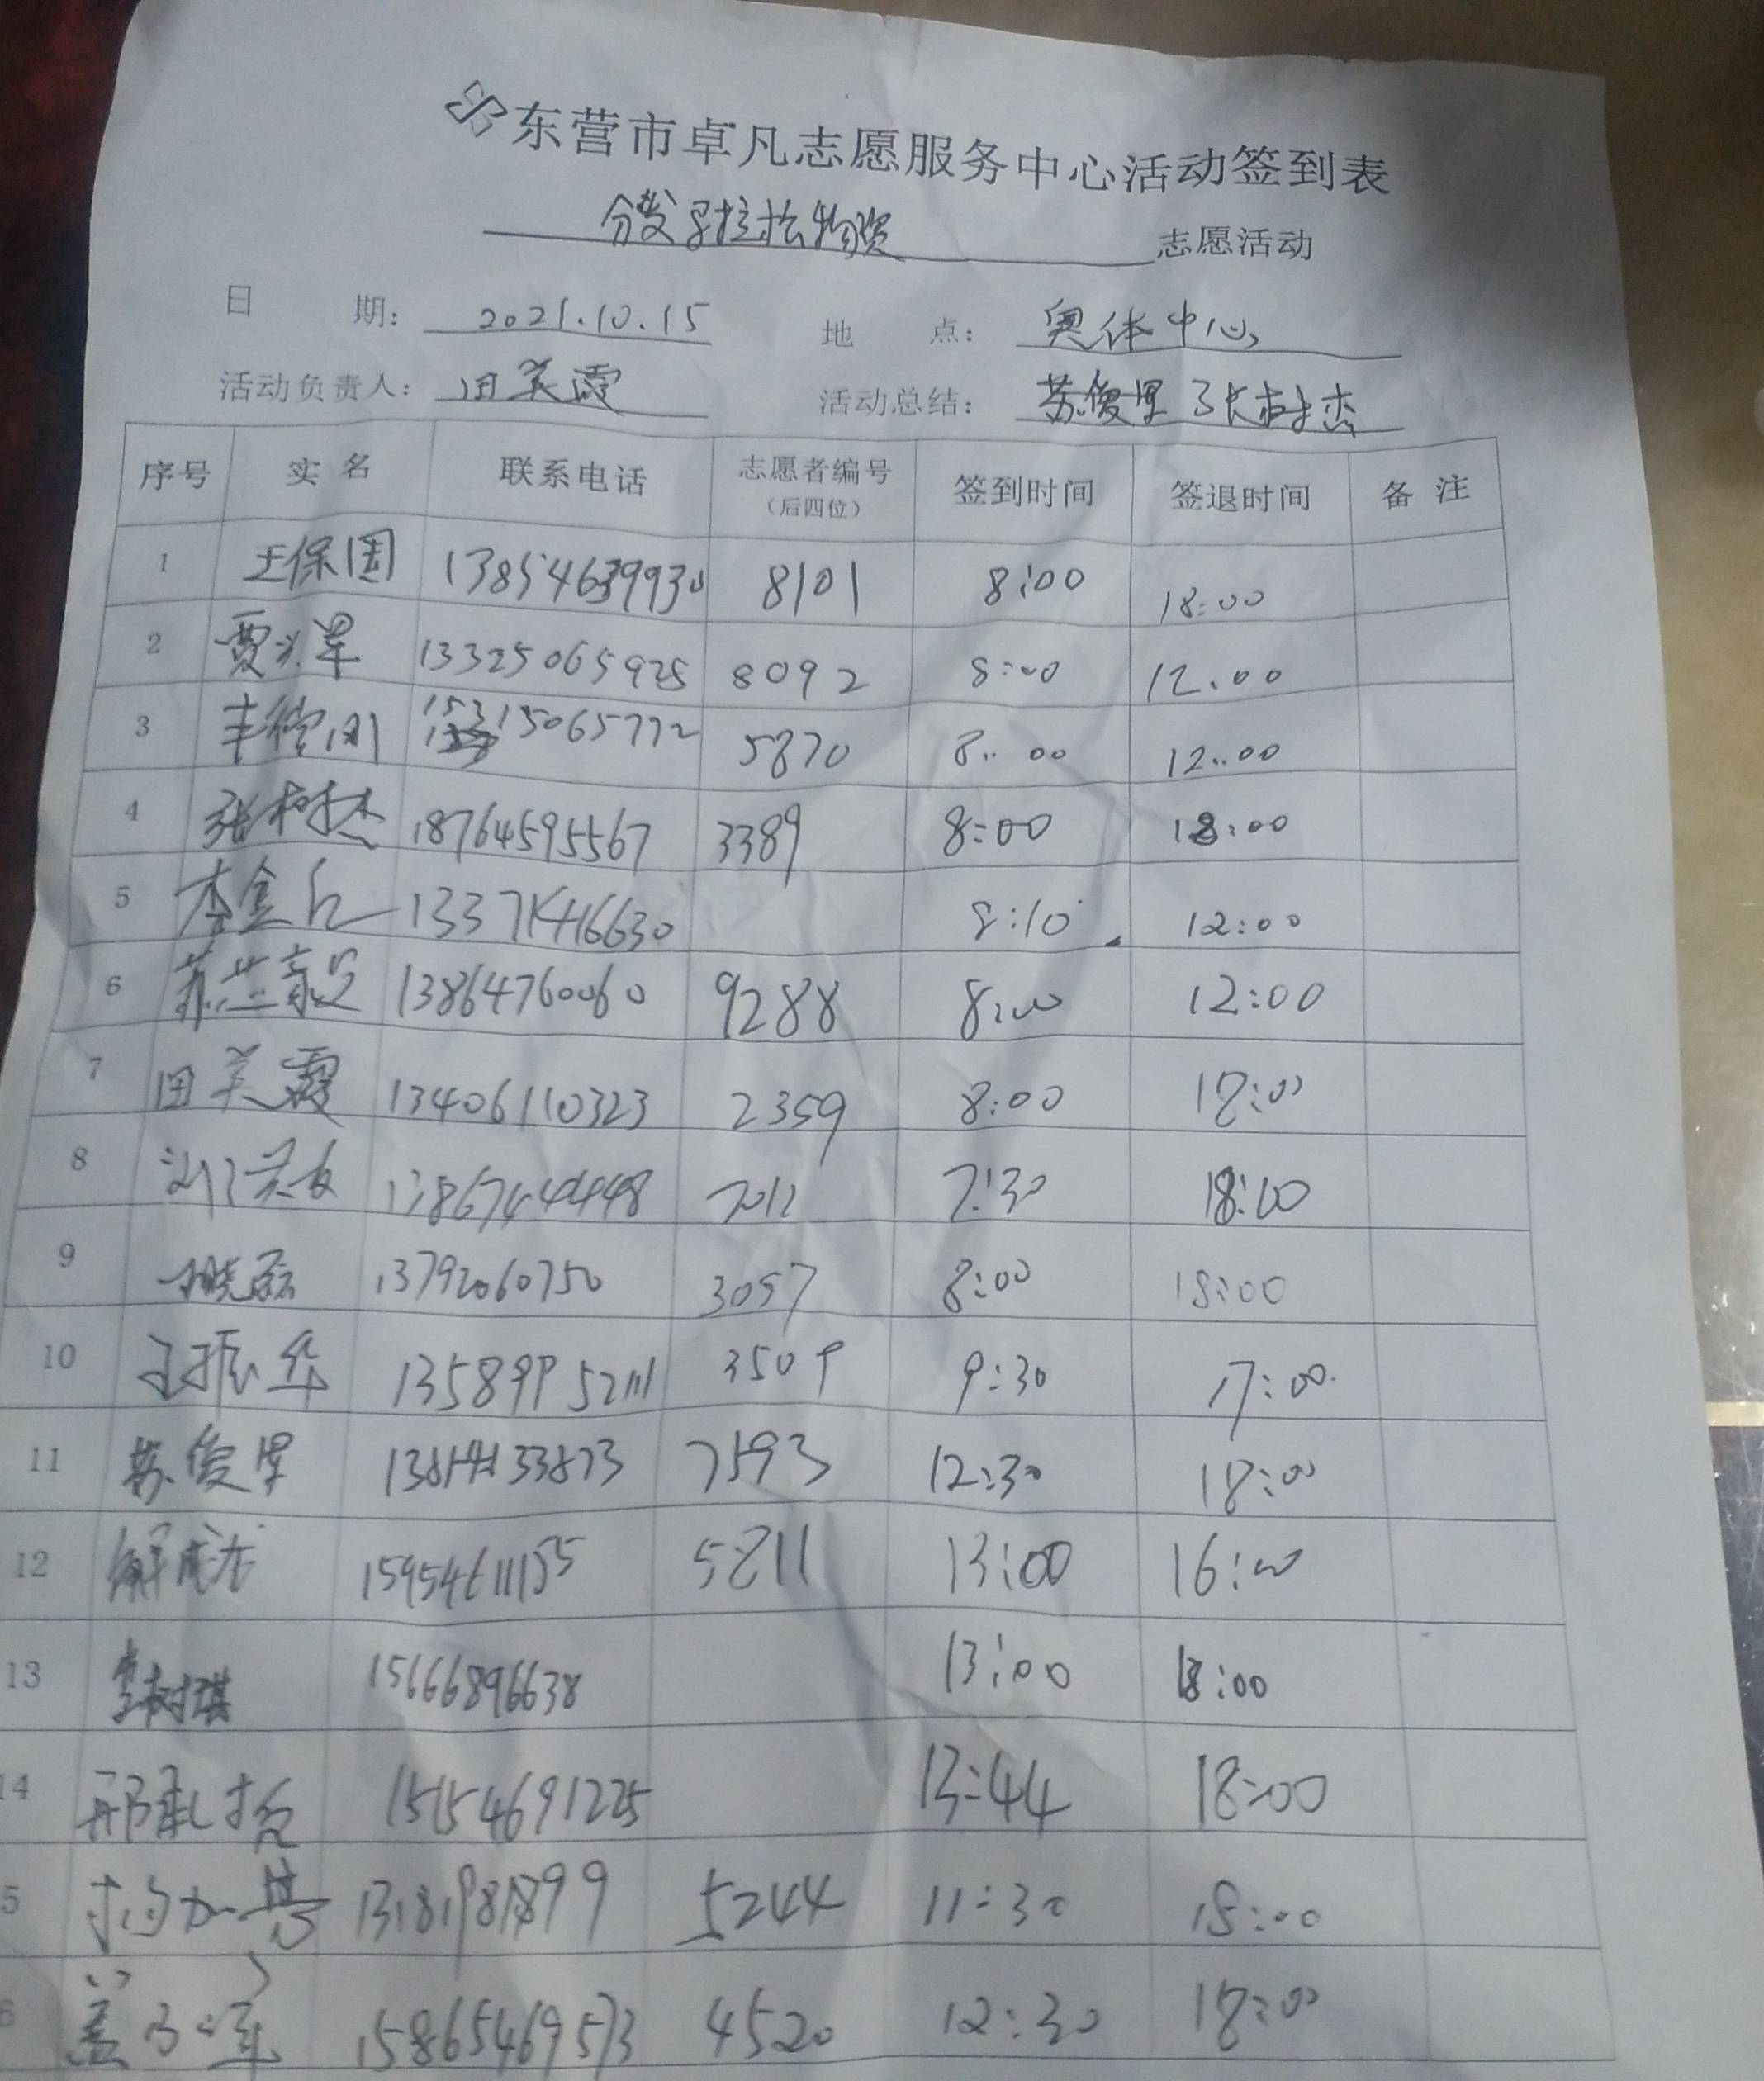 东营市卓凡志愿服务中心活动签到表
分发马拉松物资 志愿活动
日期： 2021.10.15 地点： 奥体中心
活动负责人： 田美霞 活动总结： 苏俊星 张树杰
序号 实名 联系电话 志愿者编号（后四位） 签到时间 签退时间 备注
1 王保国 13854639930 8101 8:00 18:00
2 13325065925 8092 8:00 12:00
3 15315065772 5870 8:00 12:00
4 张树杰 18764595567 3389 8:00 18:00
5 李金 13371416630 8:10 12:00
6 13864760060 9288 8:00 12:00
7 田美霞 13406110323 2359 8:00 18:00
8 7:30 18:00
9 13792060750 3057 8:00 18:00
10 王振华 13589952111 3509 9:30 17:00
11 苏俊星 7593 12:30 18:00
12 15954611155 5811 13:00 16:00
13 李树琪 15666896638 13:00 18:00
14 邢 15154691225 13:44 18:00
5 5244 11:30 18:00
6 盖 15865469573 4520 12:30 18:00